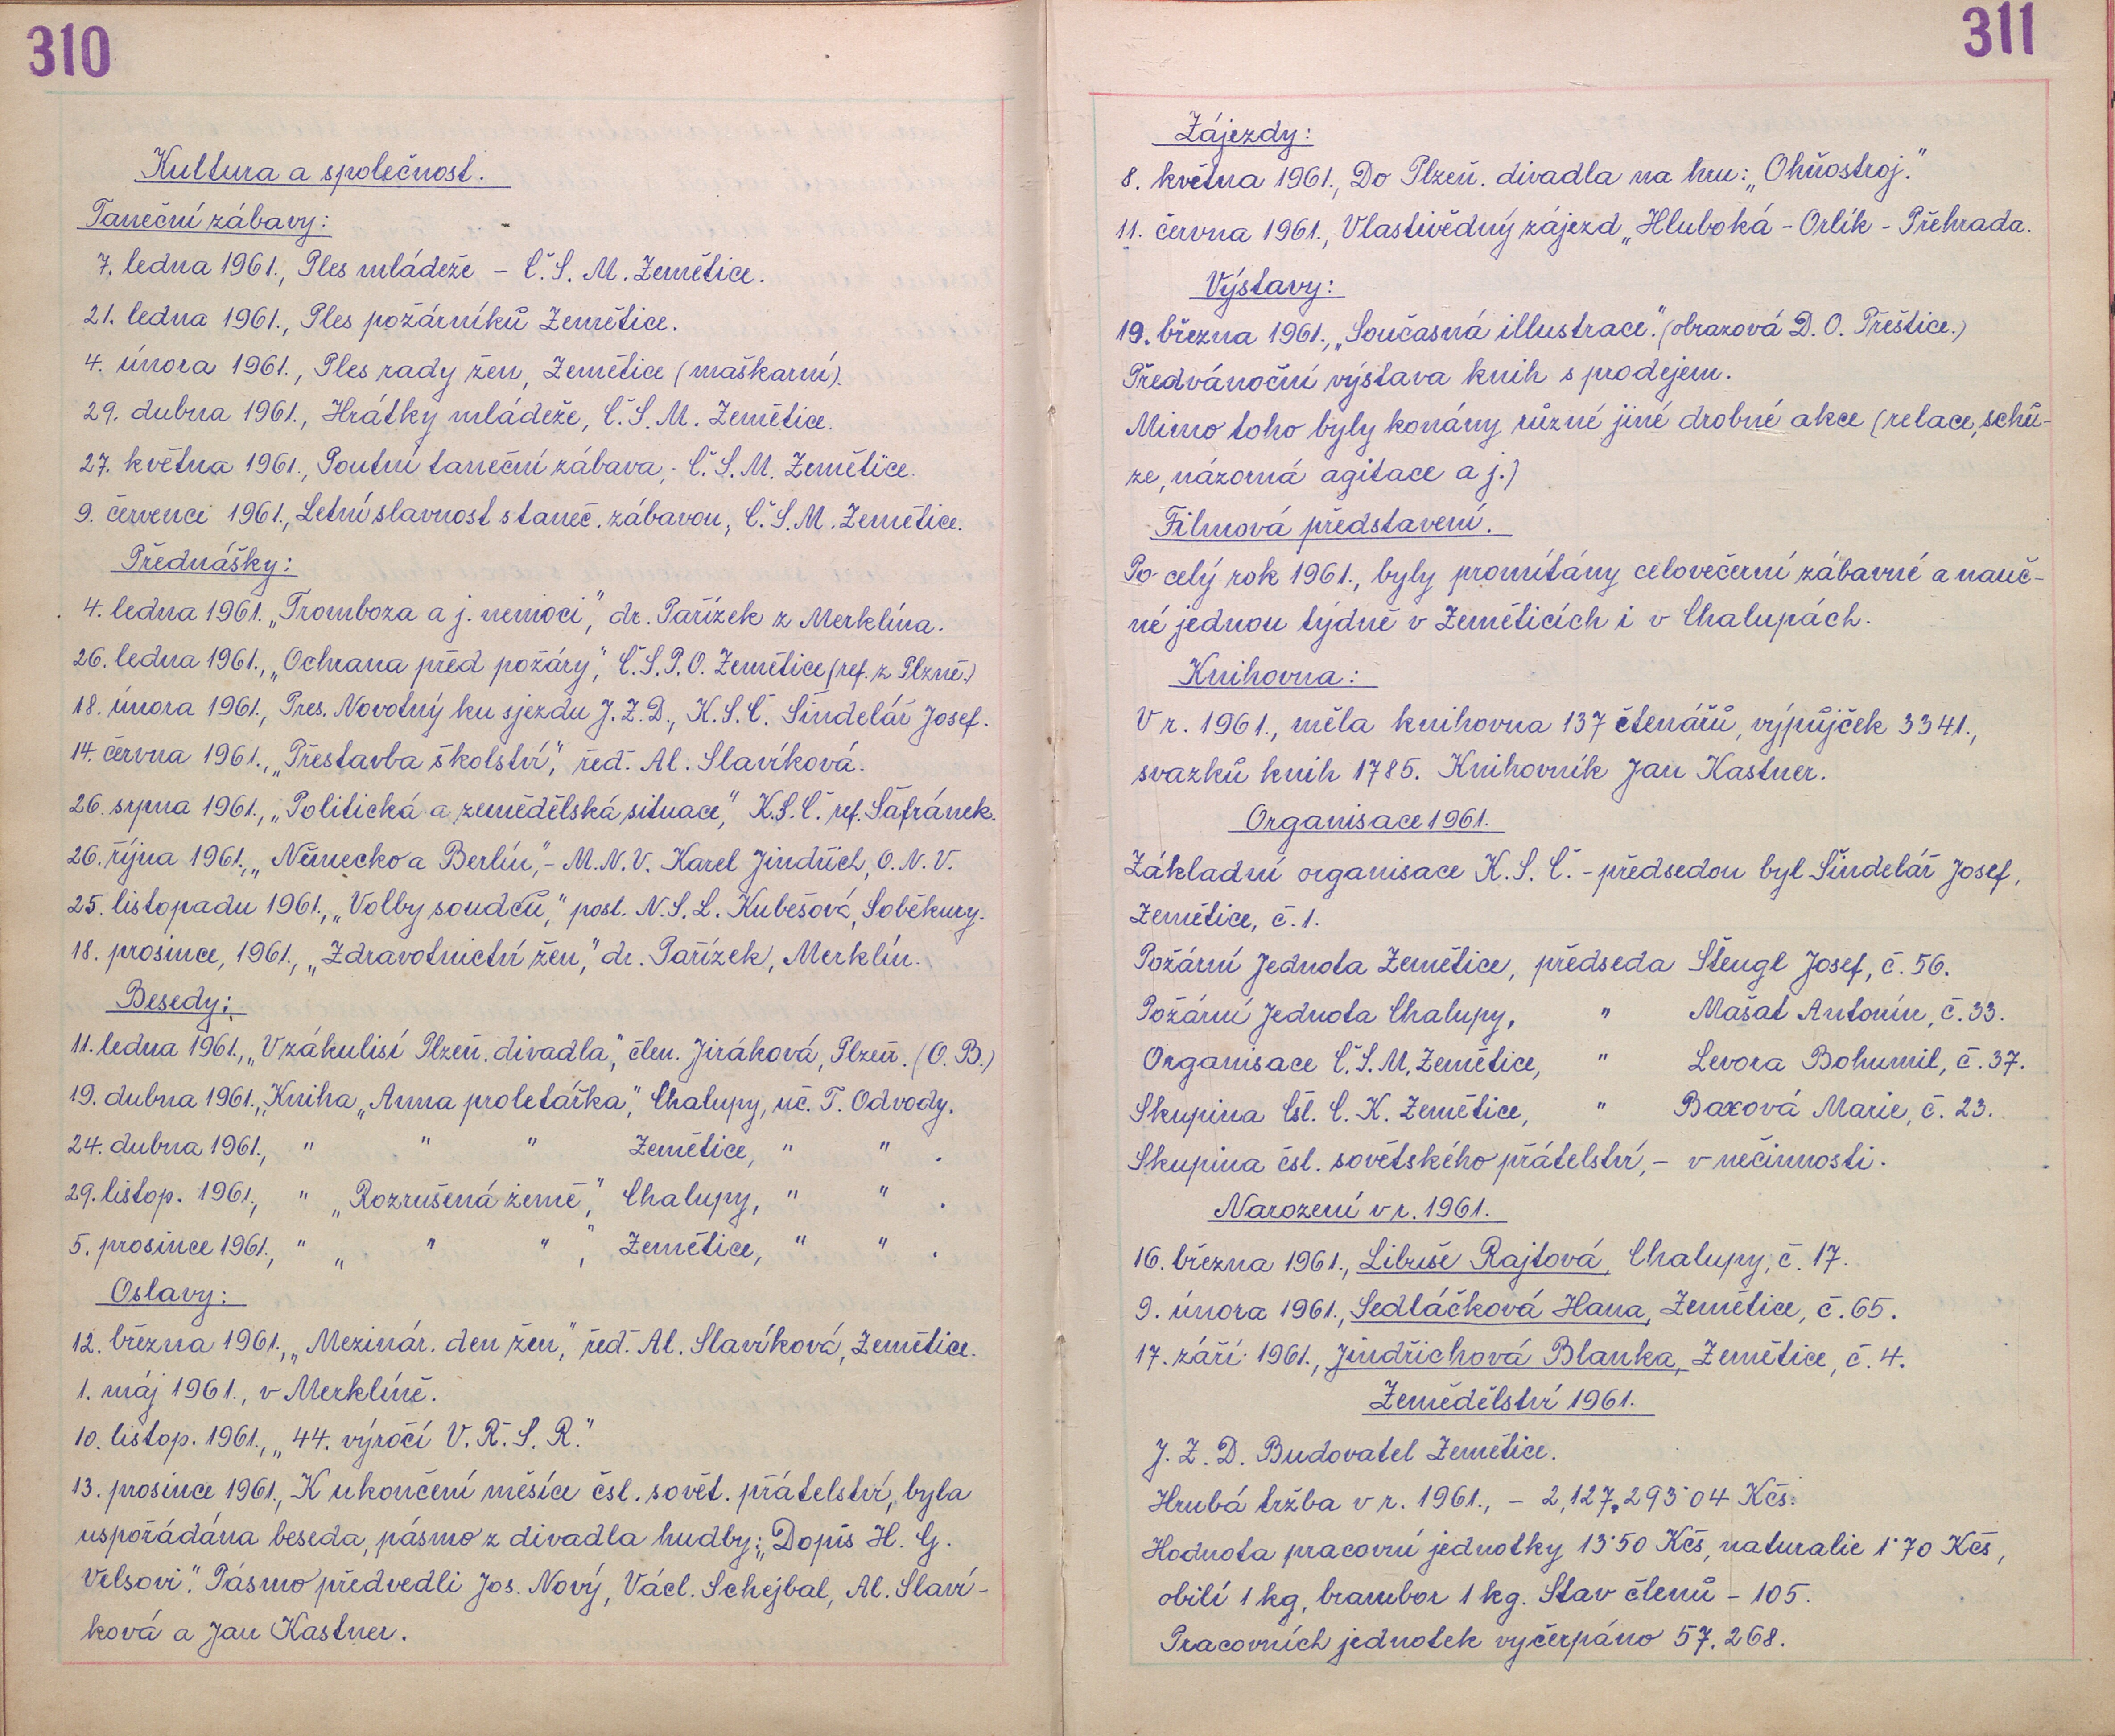 310
Kultura a společnost.
Taneční zábavy:
7. ledna 1961., Ples mládeže – Č.S.M. Zemětice.
21. ledna 1961., Ples požárníků Zemětice.
4. února 1961., Ples rady žen, Zemětice (maškarní).
29. dubna 1961., Hrátky mládeže, Č.S.M. Zemětice.
27. května 1961., Poutní taneční zábava, Č.S.M. Zemětice.
9. červenci 1961., Letní slavnost s taneč. zábavou, Č.S.M. Zemětice.
Přednášky:
4. ledna 1961. „Tromboza a j. nemoci", dr. Pařízek z Merklína.
26. ledna 1961., „Ochrana před požáry", Č.S.P.O. Zemětice (ref. z Plzně.)
18. února 1961., Pres. Novotný ku sjezdu J.Z.D., K.S.Č. Šindelář Josef.
14. června 1961., „Přestavba školství", řed. Al. Slavíková.
26. srpna 1961., „Politická a zemědělská situace", K.S.Č. ref. Šafránek.
26. října 1961., „Německo a Berlín", – M.N.V. Karel Jindřich, O.N.V.
25. listopadu 1961., „Volby soudců," posl. N.S.L. Kubešová, Soběkury.
18. prosince, 1961., „Zdravotnictví žen," dr. Pařízek, Merklín.
Besedy:
11. ledna 1961., „V zákulisí Plzeň. divadla", člen. Jiráková, Plzeň. (O.B.)
19. dubna 1961., Kniha „Anna proletářka", Chalupy, uč. T. Odvody.
24. dubna 1961., " " " Zemětice, " " .
29. listop. 1961., " „Rozrušená země", Chalupy, " " .
5. prosince 1961., " „ " " ", Zemětice, " " .
Oslavy:
12. března 1961., „Mezinár. den žen," řed. Al. Slavíková, Zemětice.
1. máj 1961., v Merklíně.
10. listop. 1961., „44. výročí V.Ř.S.R."
13. prosince 1961., K ukončení měsíce čsl. sovět. přátelství, byla
uspořádána beseda, pásmo z divadla hudby: „Dopis H. G.
Velsovi". Pásmo předvedli Jos. Nový, Václ. Schejbal, Al. Slaví-
ková a Jan Kastner.
311
Zájezdy:
8. května 1961., Do Plzeň. divadla na hru: „Ohňostroj."
11. června 1961., Vlastivědný zájezd „Hluboká – Orlík – Přehrada.
Výstavy:
19. března 1961., „Současná illustrace." (obrazová D.O. Přeštice.)
Předvánoční výstava knih s prodejem.
Mimo toho byly konány různé jiné drobné akce (relace, schů-
ze, názorná agitace a j.)
Filmová představení.
Po celý rok 1961., byly promítány celovečerní zábavné a nauč-
né jednou týdně v Zeměticích i v Chalupách.
Knihovna:
V r. 1961., měla knihovna 137 čtenářů, výpůjček 3341.,
svazků knih 1785. Knihovník Jan Kastner.
Organisace 1961.
Základní organisace K.S.Č. – předsedou byl Šindelář Josef,
Zemětice, č. 1.
Požární Jednota Zemětice, předseda Štengl Josef, č. 56.
Požární Jednota Chalupy, " Mašat Antonín, č. 33.
Organisace Č.S.M. Zemětice, " Levora Bohumil, č. 37.
Skupina Čsl. Č.K. Zemětice, " Baxová Marie, č. 23.
Skupina čsl. sovětského přátelství, – v nečinnosti.
Narození v r. 1961.
16. března 1961., Libuše Rajtová, Chalupy, č. 17.
9. února 1961., Sedláčková Hana, Zemětice, č. 65.
17. září 1961., Jindřichová Blanka, Zemětice, č. 4.
Zemědělství 1961.
J.Z.D. Budovatel Zemětice.
Hrubá tržba v r. 1961., – 2,127.293˙04 Kčs.
Hodnota pracovní jednotky 13˙50 Kčs, naturalie 1˙70 Kčs,
obilí 1 kg, brambor 1 kg. Stav členů – 105.
Pracovních jednotek vyčerpáno 57.268.